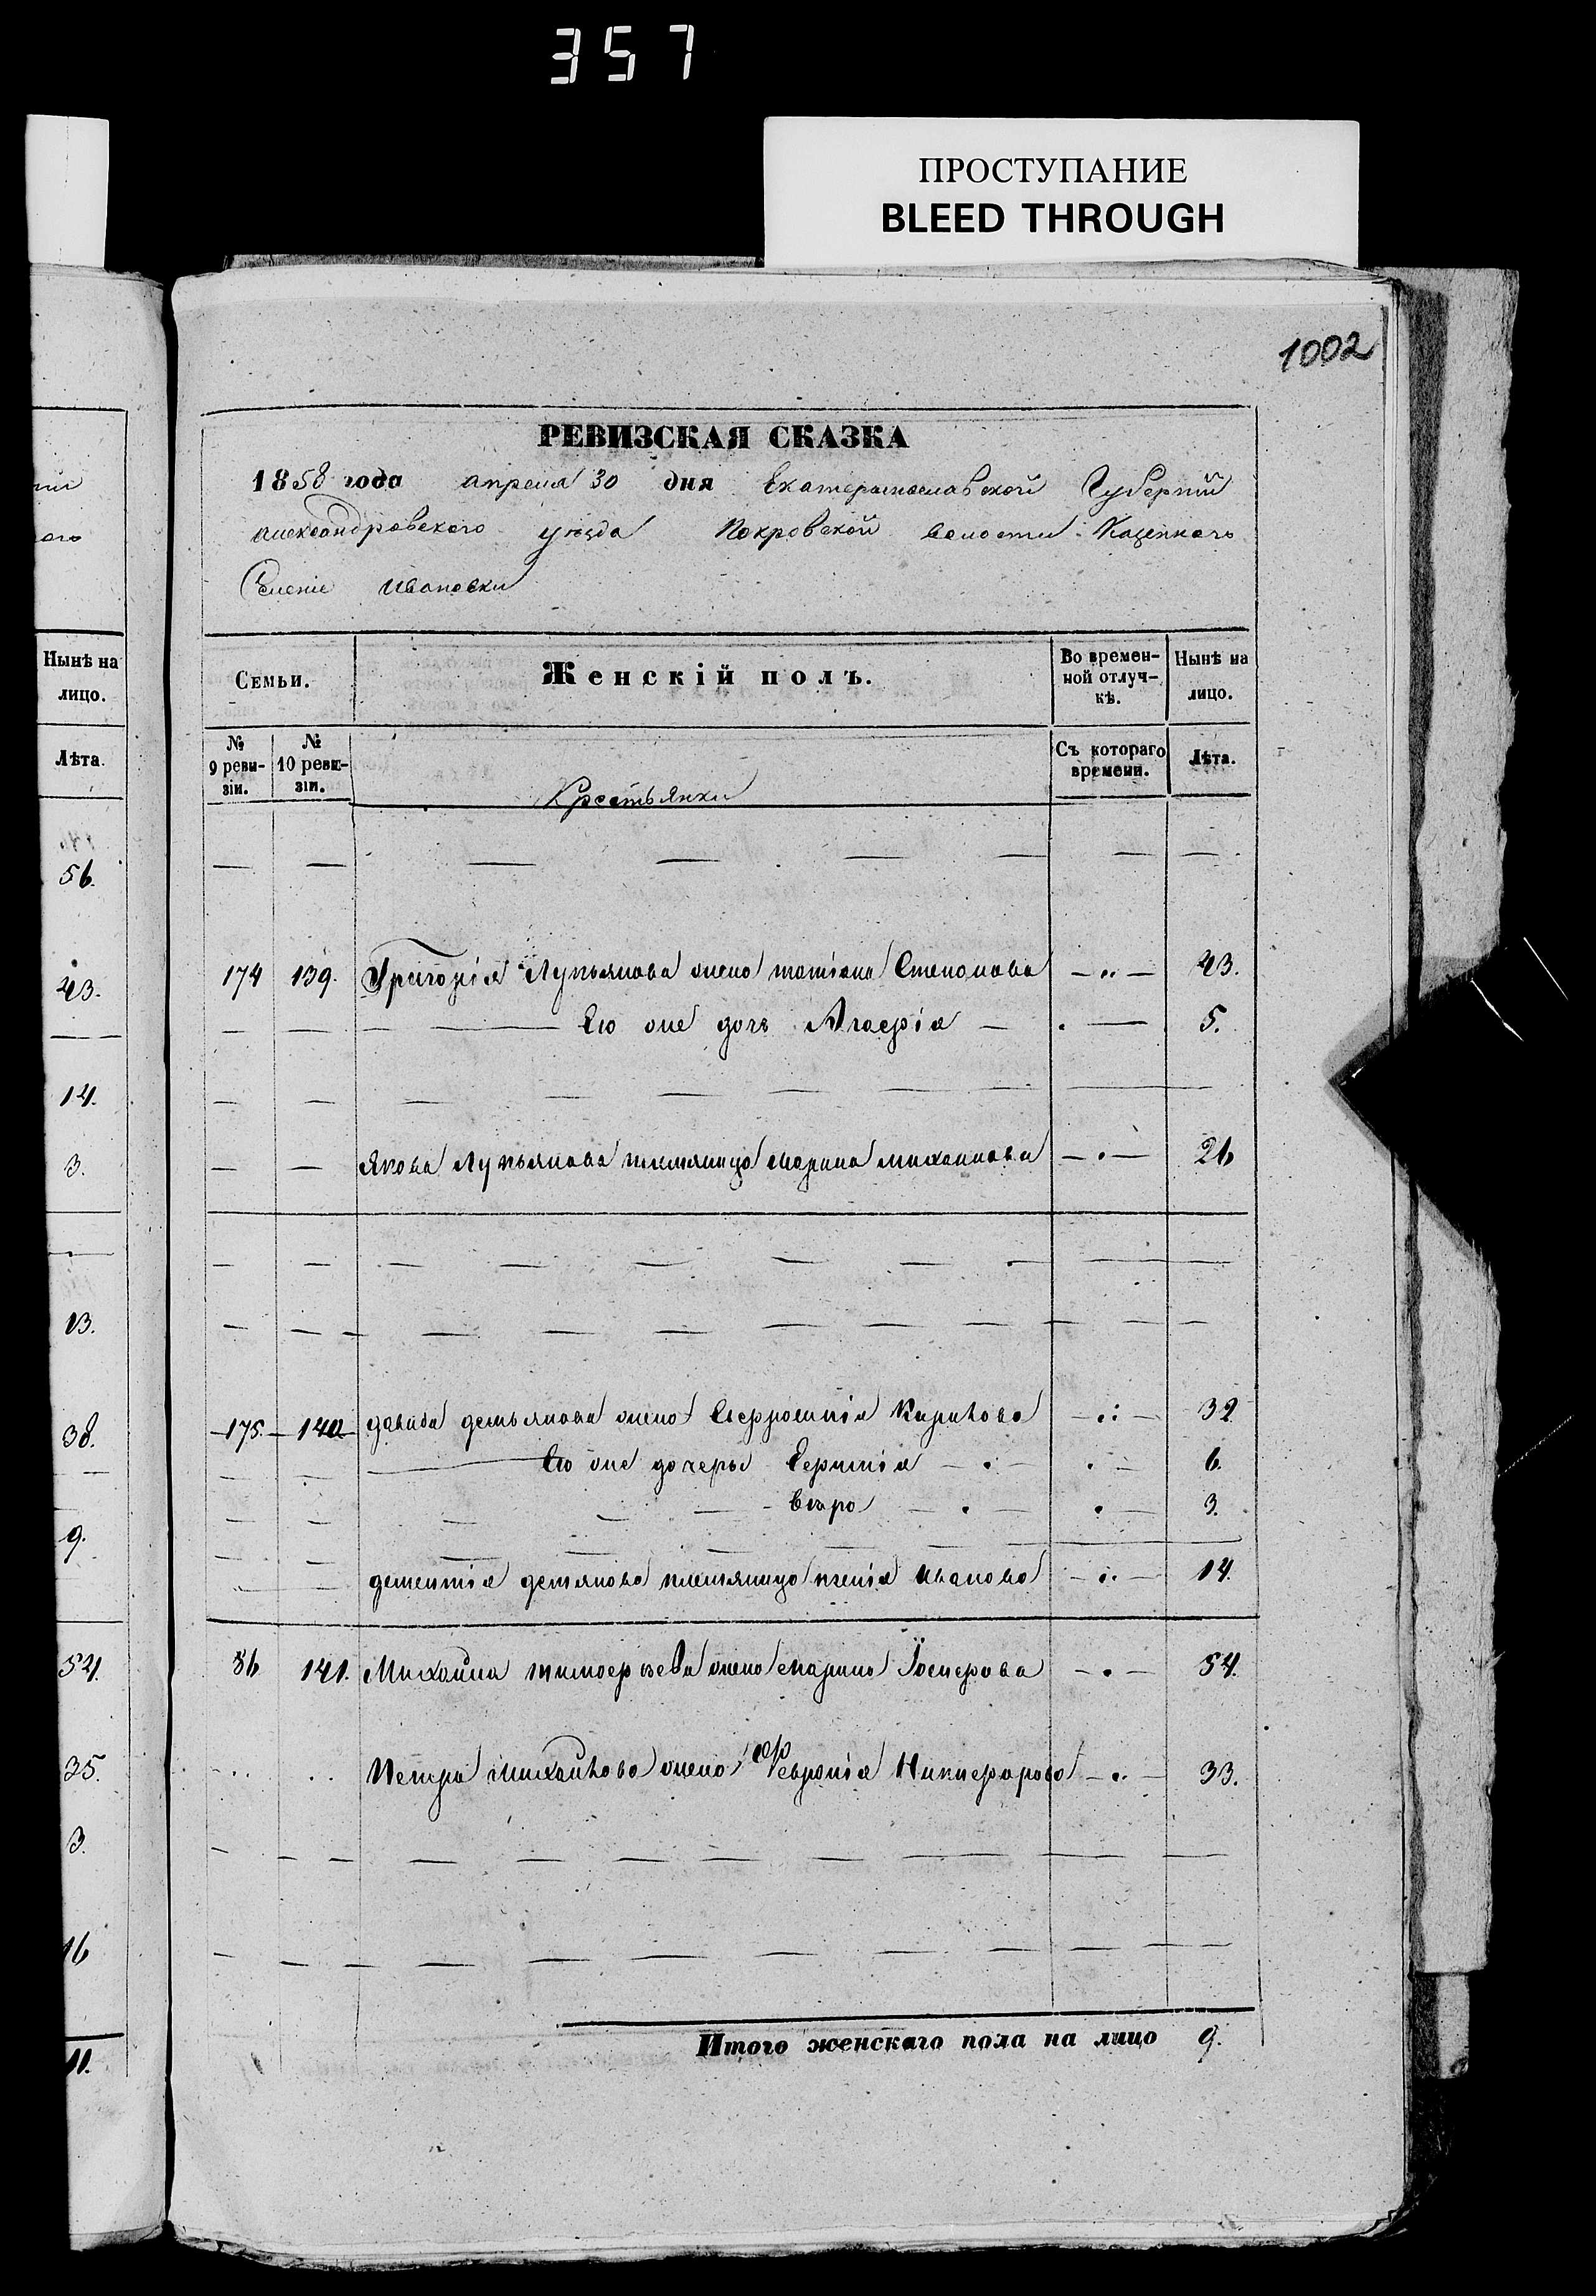 357
ПРОСТУПАНИЕ
BLEED THROUGH
1002
РЕВИЗСКАЯ СКАЗКА
1858 года апреля 30 дня Екатеринославской Губернии
александровского уезда Покровской волости Казенного
Селеніе Ивановки
Нынѣ на
лицо.
Лѣта.
56.
43.
14.
3.
13.
38.
9.
54.
35.
3.
16
11.
Семьи.
Женскій полъ.
Во времен-
ной отлуч-
кѣ.
Нынѣ на
лицо.
№
9 реви-
зіи.
№
10 реви-
зіи.
Крестьянки
Съ котораго
времени.
Лѣта.
174 139. Григорія Лупьянова жена татіяна Степанова 43.
Его же дочь Агафія 5.
Якова Лупьянова племяница марина михаилова 26
175. 140 давида демьянова жена Кирилова 32
Его же дочеры 6.
3.
дементія демянова племяница Иванова 14.
86 141. Михайла тимофеева жена марина Іосифова 54.
Петра Михайлова жена Февронія Никифорова 33.
Итого женскаго пола на лицо 9.